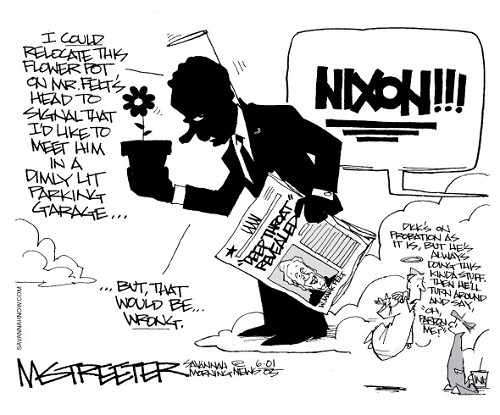 I COULD
RELOCATE THIS
FLOWER POT
ON MR. FELT'S
HEAD TO
SIGNAL THAT
I'D LIKE TO
MEET HIM
IN A
DIMLY LIT
PARKING
GARAGE...
...BUT, THAT
WOULD BE...
WRONG.
NIXON!!!
"DEEP THROAT"
REVEALED
W. MARK FELT
DICK'S ON
PROBATION AS
IT IS, BUT HE'S
ALWAYS
DOING THIS
KINDA STUFF.
THEN HE'LL
TURN AROUND
AND SAY,
"OH,
PARDON
ME!"
SAVANNAHNOW.COM
M. STREETER
SAVANNAH © 6-01
MORNING NEWS 05